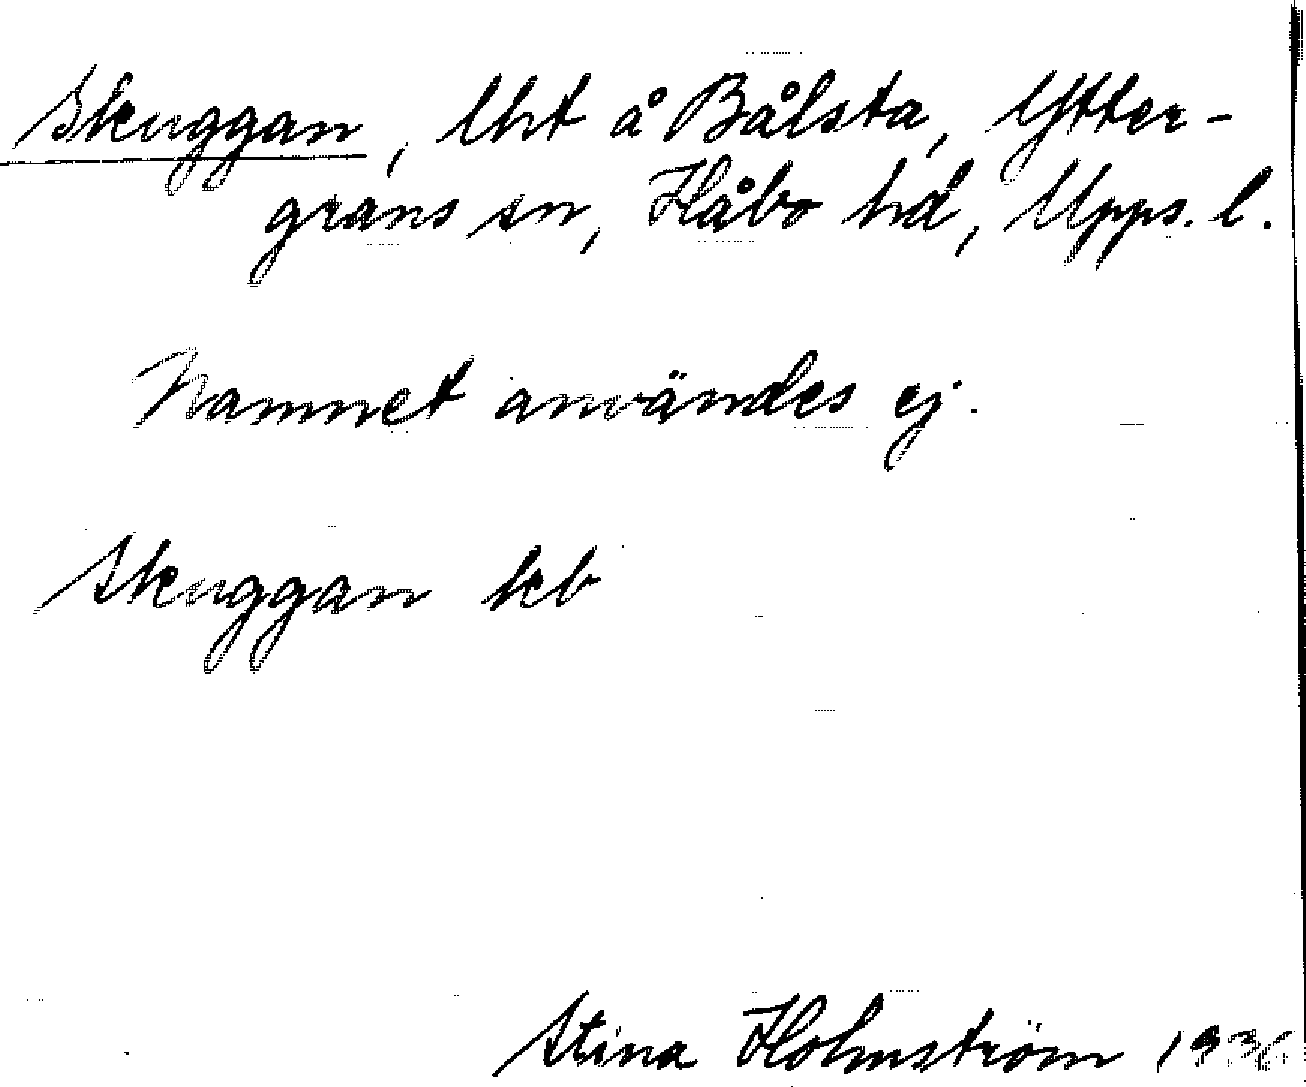 Skuggan, lht å Bålsta, Ytter-
grans sn, Håbo hd, Upps. l.
Namnet användes ej.
Skuggan kb
Stina Holmström